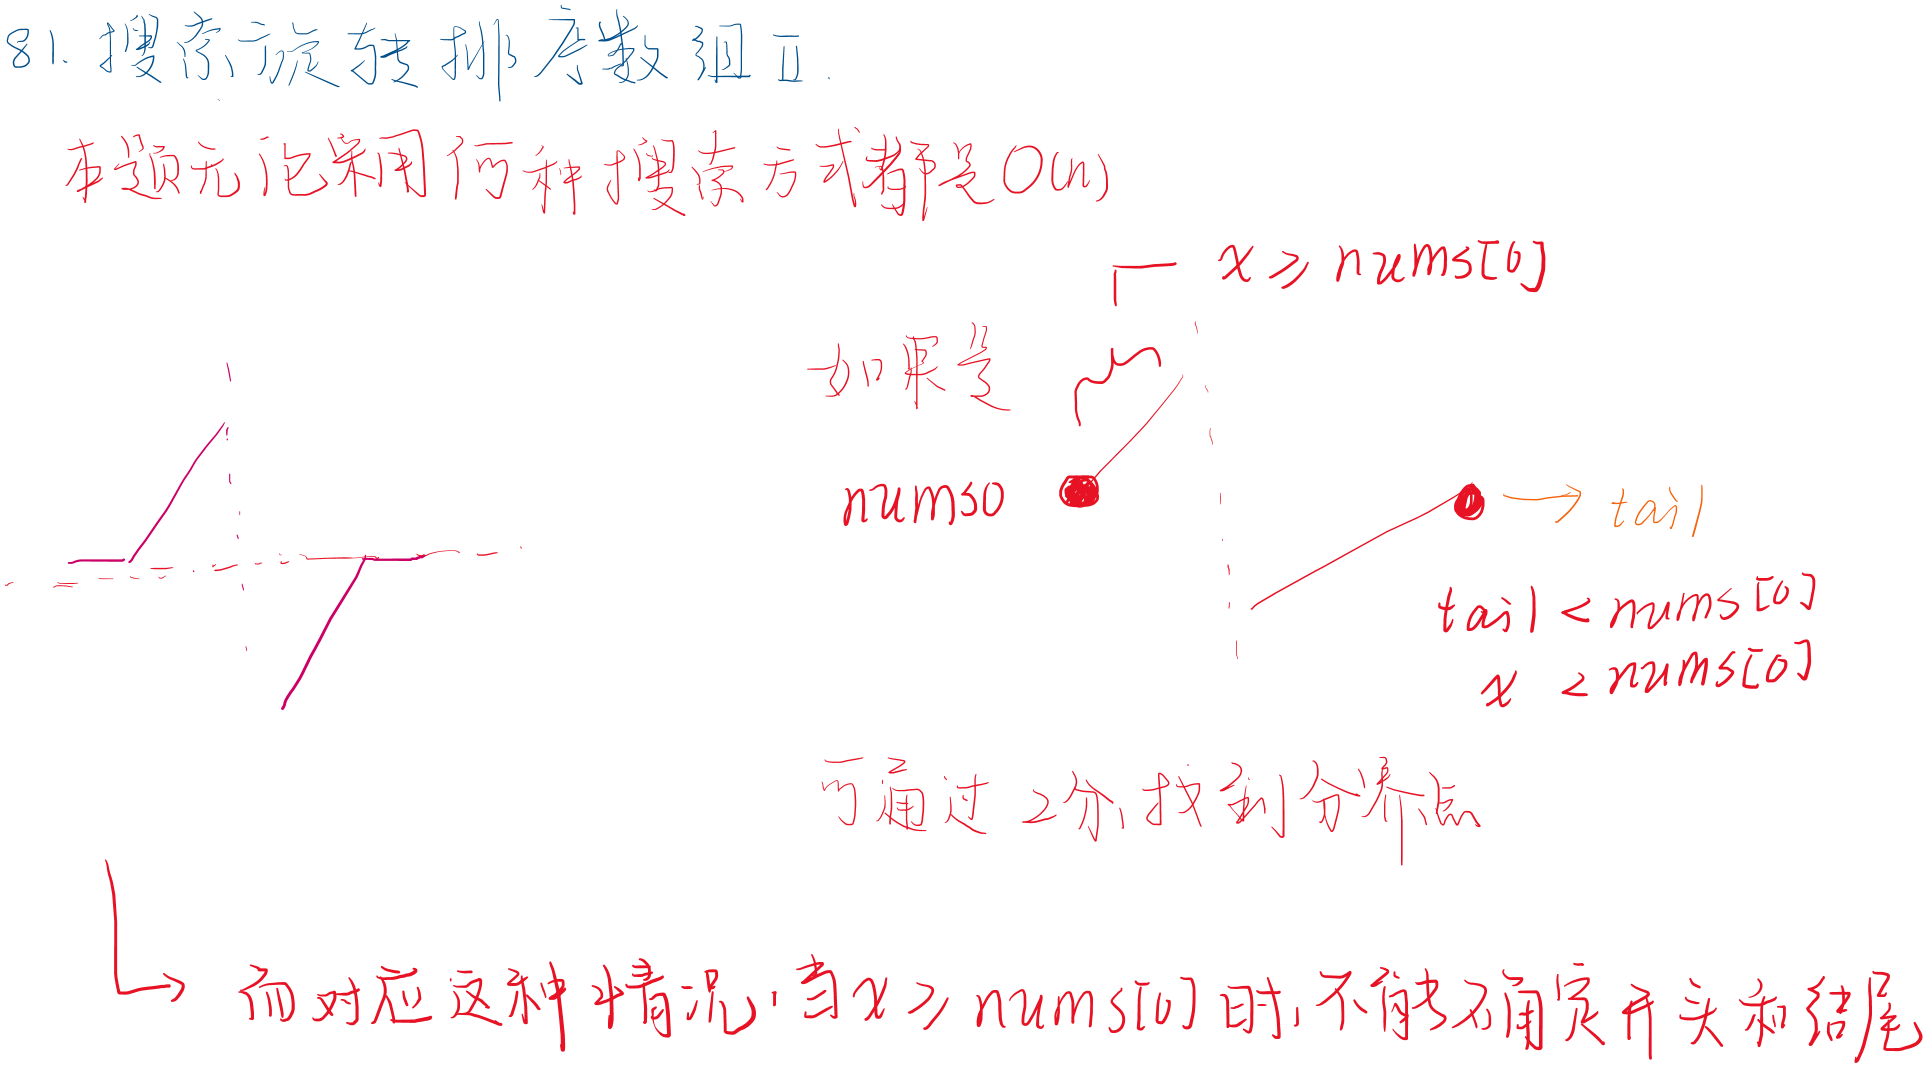 81. 搜索旋转排序数组 II.
本题无论采用何种搜索方式都是O(n)
x ≥ nums[0]
如果是
nums0
tail
tail < nums[0]
x < nums[0]
可通过2分,找到分界点
而对应这种情况,当x ≥ nums[0]时,不能确定开头和结尾